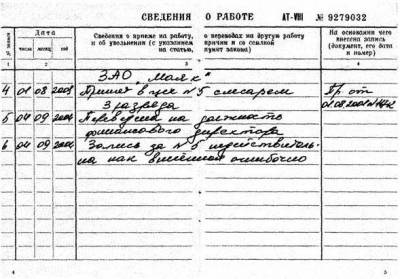 СВЕДЕНИЯ О РАБОТЕ АТ-VIII № 9279032
№ записи
Дата
число месяц год
Сведения о приеме на работу, о переводах на другую работу
и об увольнении (с указанием причин и со ссылкой
на статью, пункт закона)
На основании чего
внесена запись
(документ, его дата
и номер)
1 2 3 4
ЗАО „Маяк"
4 01 08 Принят в цех №5 слесарем Пр. от
3 разряда
5 04 09 Переведен на должность
финансового директора
6 04 09 Запись за №5 недействитель-
на как внесённая ошибочно
4 5